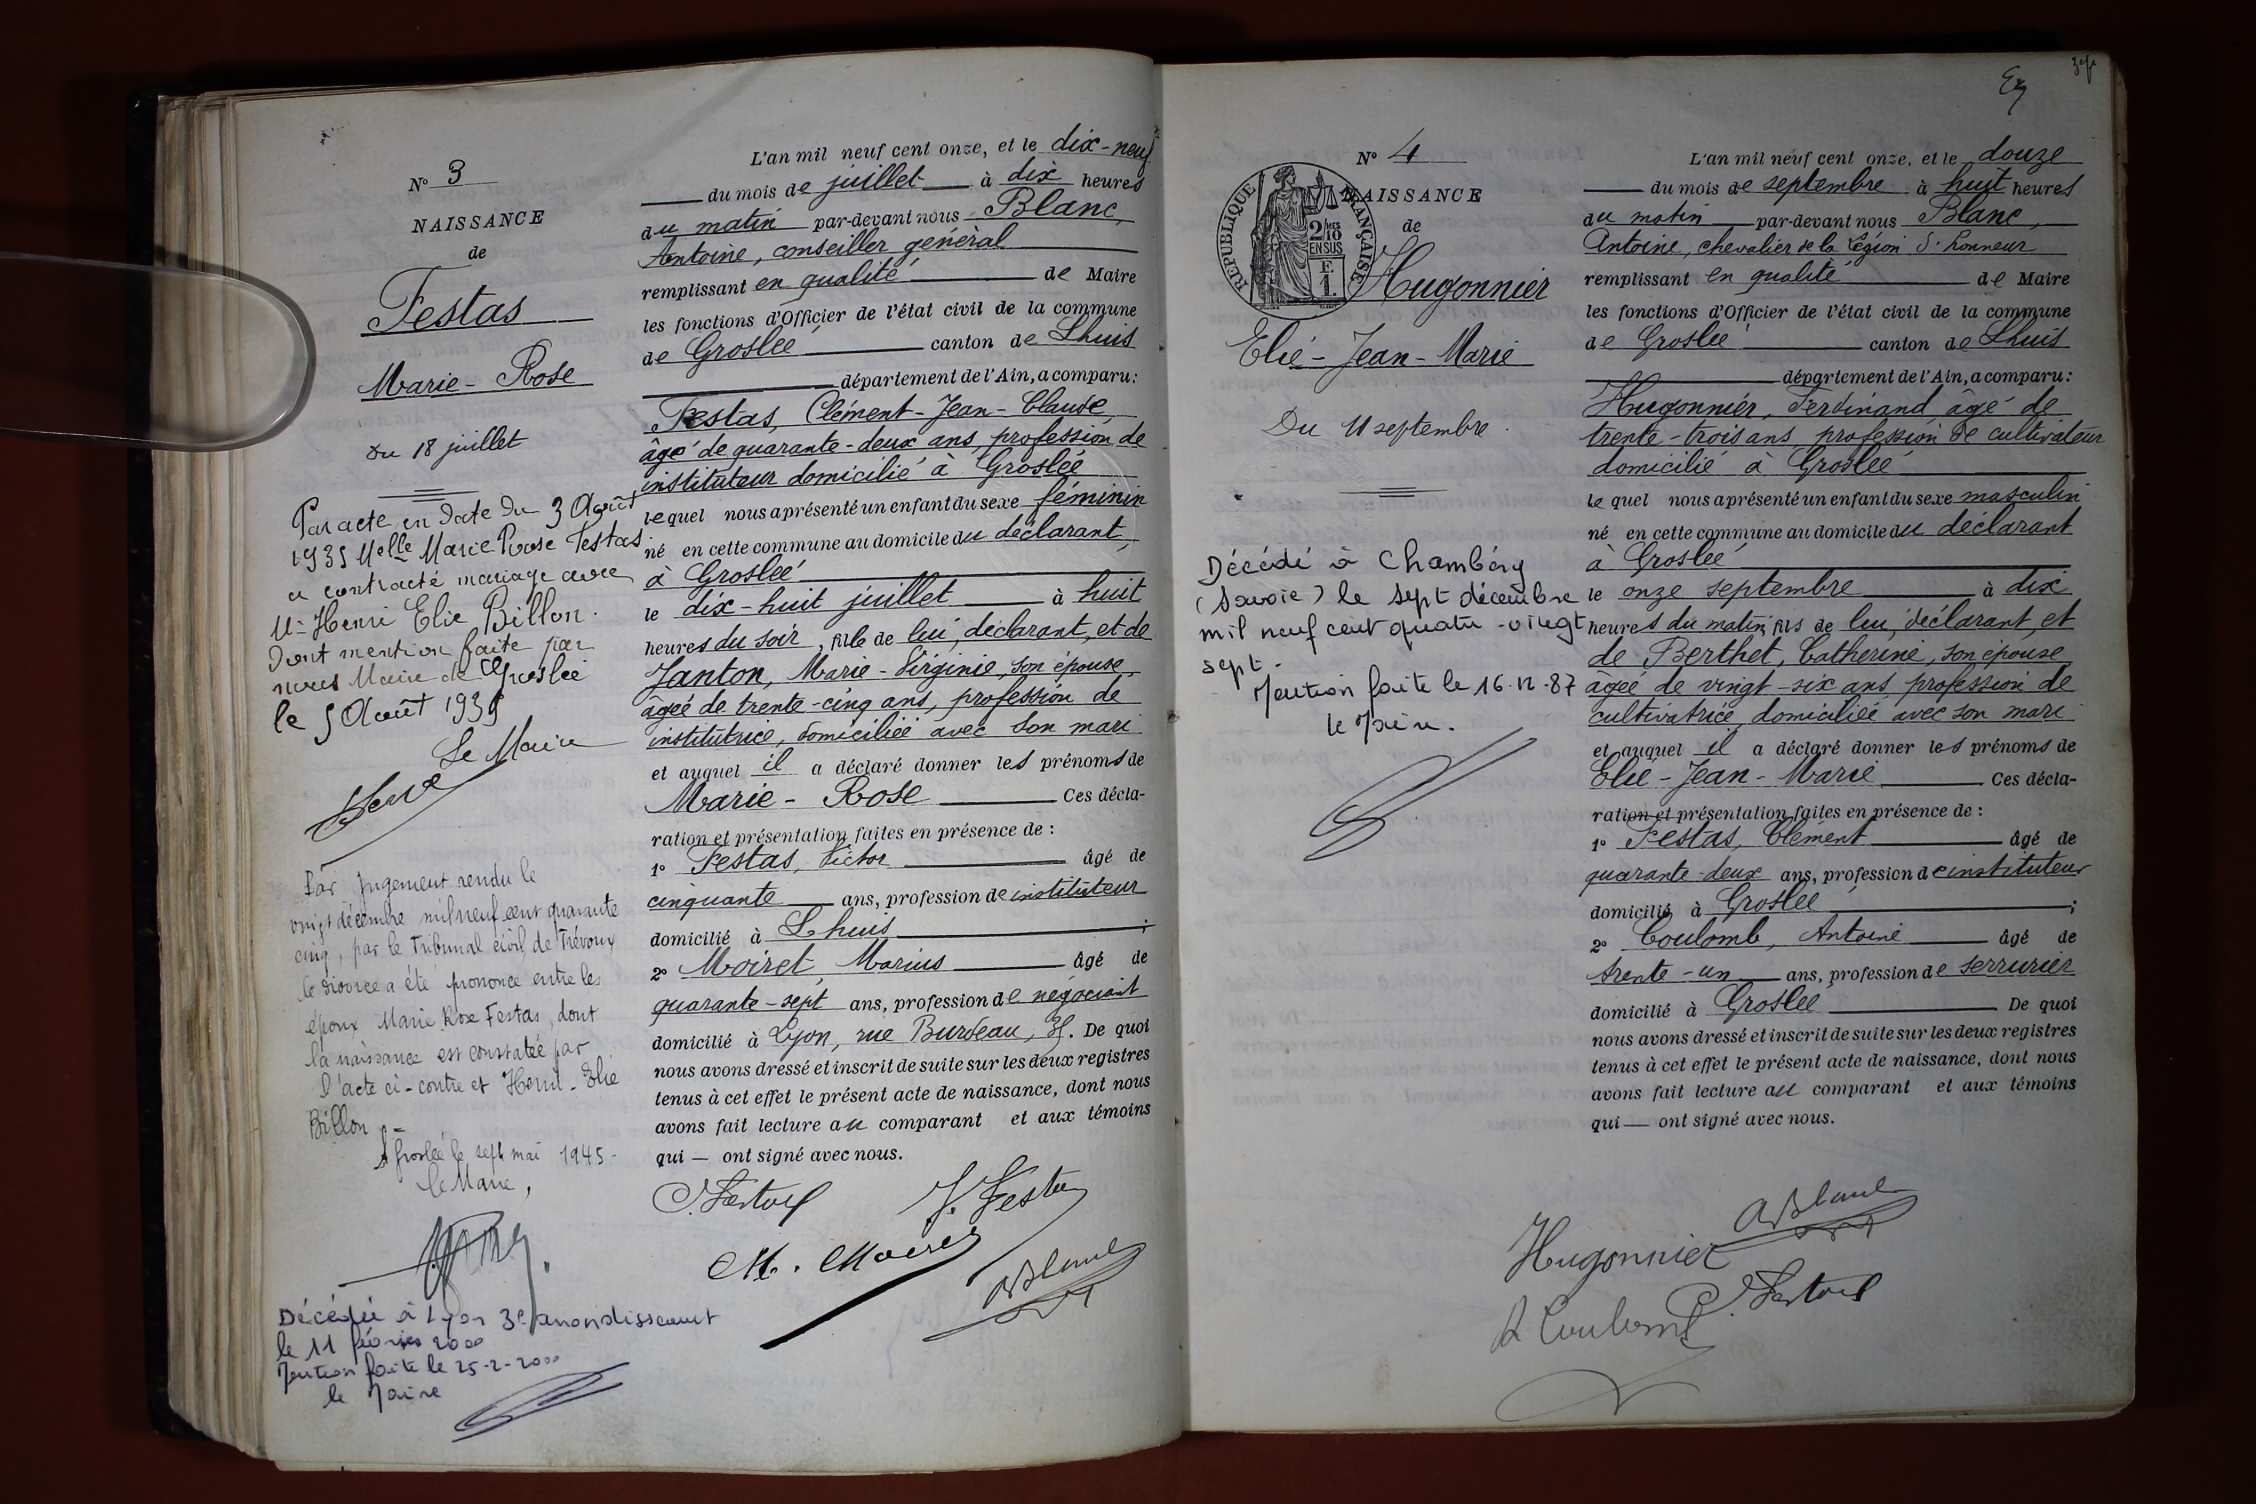 N° 3
NAISSANCE
de
Festas
Marie-Rose
du 18 juillet
Par acte en date du 3 Août
1935 Melle Marie Rose Festas
a contracté mariage avec
Mr Henri Elie Billon.
Dont mention faite par
nous Maire de Groslée
le 5 Août 1935
Le Maire
Par jugement rendu le
vingt décembre mil neuf cent quarante
cinq, par le Tribunal civil de Trévoux
le divorce a été prononcé entre les
époux Marie Rose Festas, dont
la naissance est constatée par
l'acte ci-contre et Henri-Elie
Billon.-
A Groslée le sept mai 1945-
Le Maire,
Décédée à Lyon 3e arrondissement
le 11 février 2000
Mention faite le 25-2-2000
le Maire
L'an mil neuf cent onze, et le dix-neuf
du mois de juillet à dix heures
du matin par-devant nous Blanc,
Antoine, conseiller général
remplissant en qualité de Maire
les fonctions d'Officier de l'état civil de la commune
de Groslée canton de Lhuis
département de l'Ain, a comparu:
Festas, Clément-Jean-Claude
âgé de quarante-deux ans, profession de
instituteur domicilié à Groslée
lequel nous a présenté un enfant du sexe féminin
né en cette commune au domicile du déclarant,
à Groslée
le dix-huit juillet à huit
heures du soir, fille de lui, déclarant, et de
Janton, Marie-Virginie, son épouse,
âgée de trente-cinq ans, profession de
institutrice, domiciliée avec son mari
et auquel il a déclaré donner les prénoms de
Marie-Rose Ces décla-
ration et présentation faites en présence de :
1° Festas, Victor âgé de
cinquante ans, profession de instituteur
domicilié à Lhuis ;
2° Moiret, Marius âgé de
quarante-sept ans, profession de négociant
domicilié à Lyon, rue Burdeau, . De quoi
nous avons dressé et inscrit de suite sur les deux registres
tenus à cet effet le présent acte de naissance, dont nous
avons fait lecture au comparant et aux témoins
qui — ont signé avec nous.
C. Festas V. Festas
M. Moiret
A Blanc
N° 4
NAISSANCE
de
Hugonnier
Elie-Jean-Marie
Du 11 septembre.
RÉPUBLIQUE FRANÇAISE
2/10
EN SUS
F.
1.
Décédé à Chambéry
(Savoie) le sept décembre
mil neuf cent quatre-vingt
sept.
Mention faite le 16.12.87
le Maire.
L'an mil neuf cent onze, et le douze
du mois de septembre à huit heures
du matin par-devant nous Blanc,
Antoine, chevalier de la Légion d'honneur
remplissant en qualité de Maire
les fonctions d'Officier de l'état civil de la commune
de Groslée canton de Lhuis
département de l'Ain, a comparu:
Hugonnier, Ferdinand âgé de
trente-trois ans, profession de cultivateur
domicilié à Groslée
lequel nous a présenté un enfant du sexe masculin
né en cette commune au domicile du déclarant
à Groslée
le onze septembre à dix
heures du matin, fils de lui, déclarant, et
de Berthet, Catherine, son épouse
âgée de vingt-six ans, profession de
cultivatrice, domiciliée avec son mari
et auquel il a déclaré donner les prénoms de
Elie-Jean-Marie Ces décla-
ration et présentation faites en présence de :
1° Festas, Clément âgé de
quarante-deux ans, profession de instituteur
domicilié à Groslée ;
2° Coulomb, Antoine âgé de
trente-un ans, profession de serrurier
domicilié à Groslée De quoi
nous avons dressé et inscrit de suite sur les deux registres
tenus à cet effet le présent acte de naissance, dont nous
avons fait lecture au comparant et aux témoins
qui — ont signé avec nous.
A Blanc
Hugonnier
C. Festas
A Coulomb